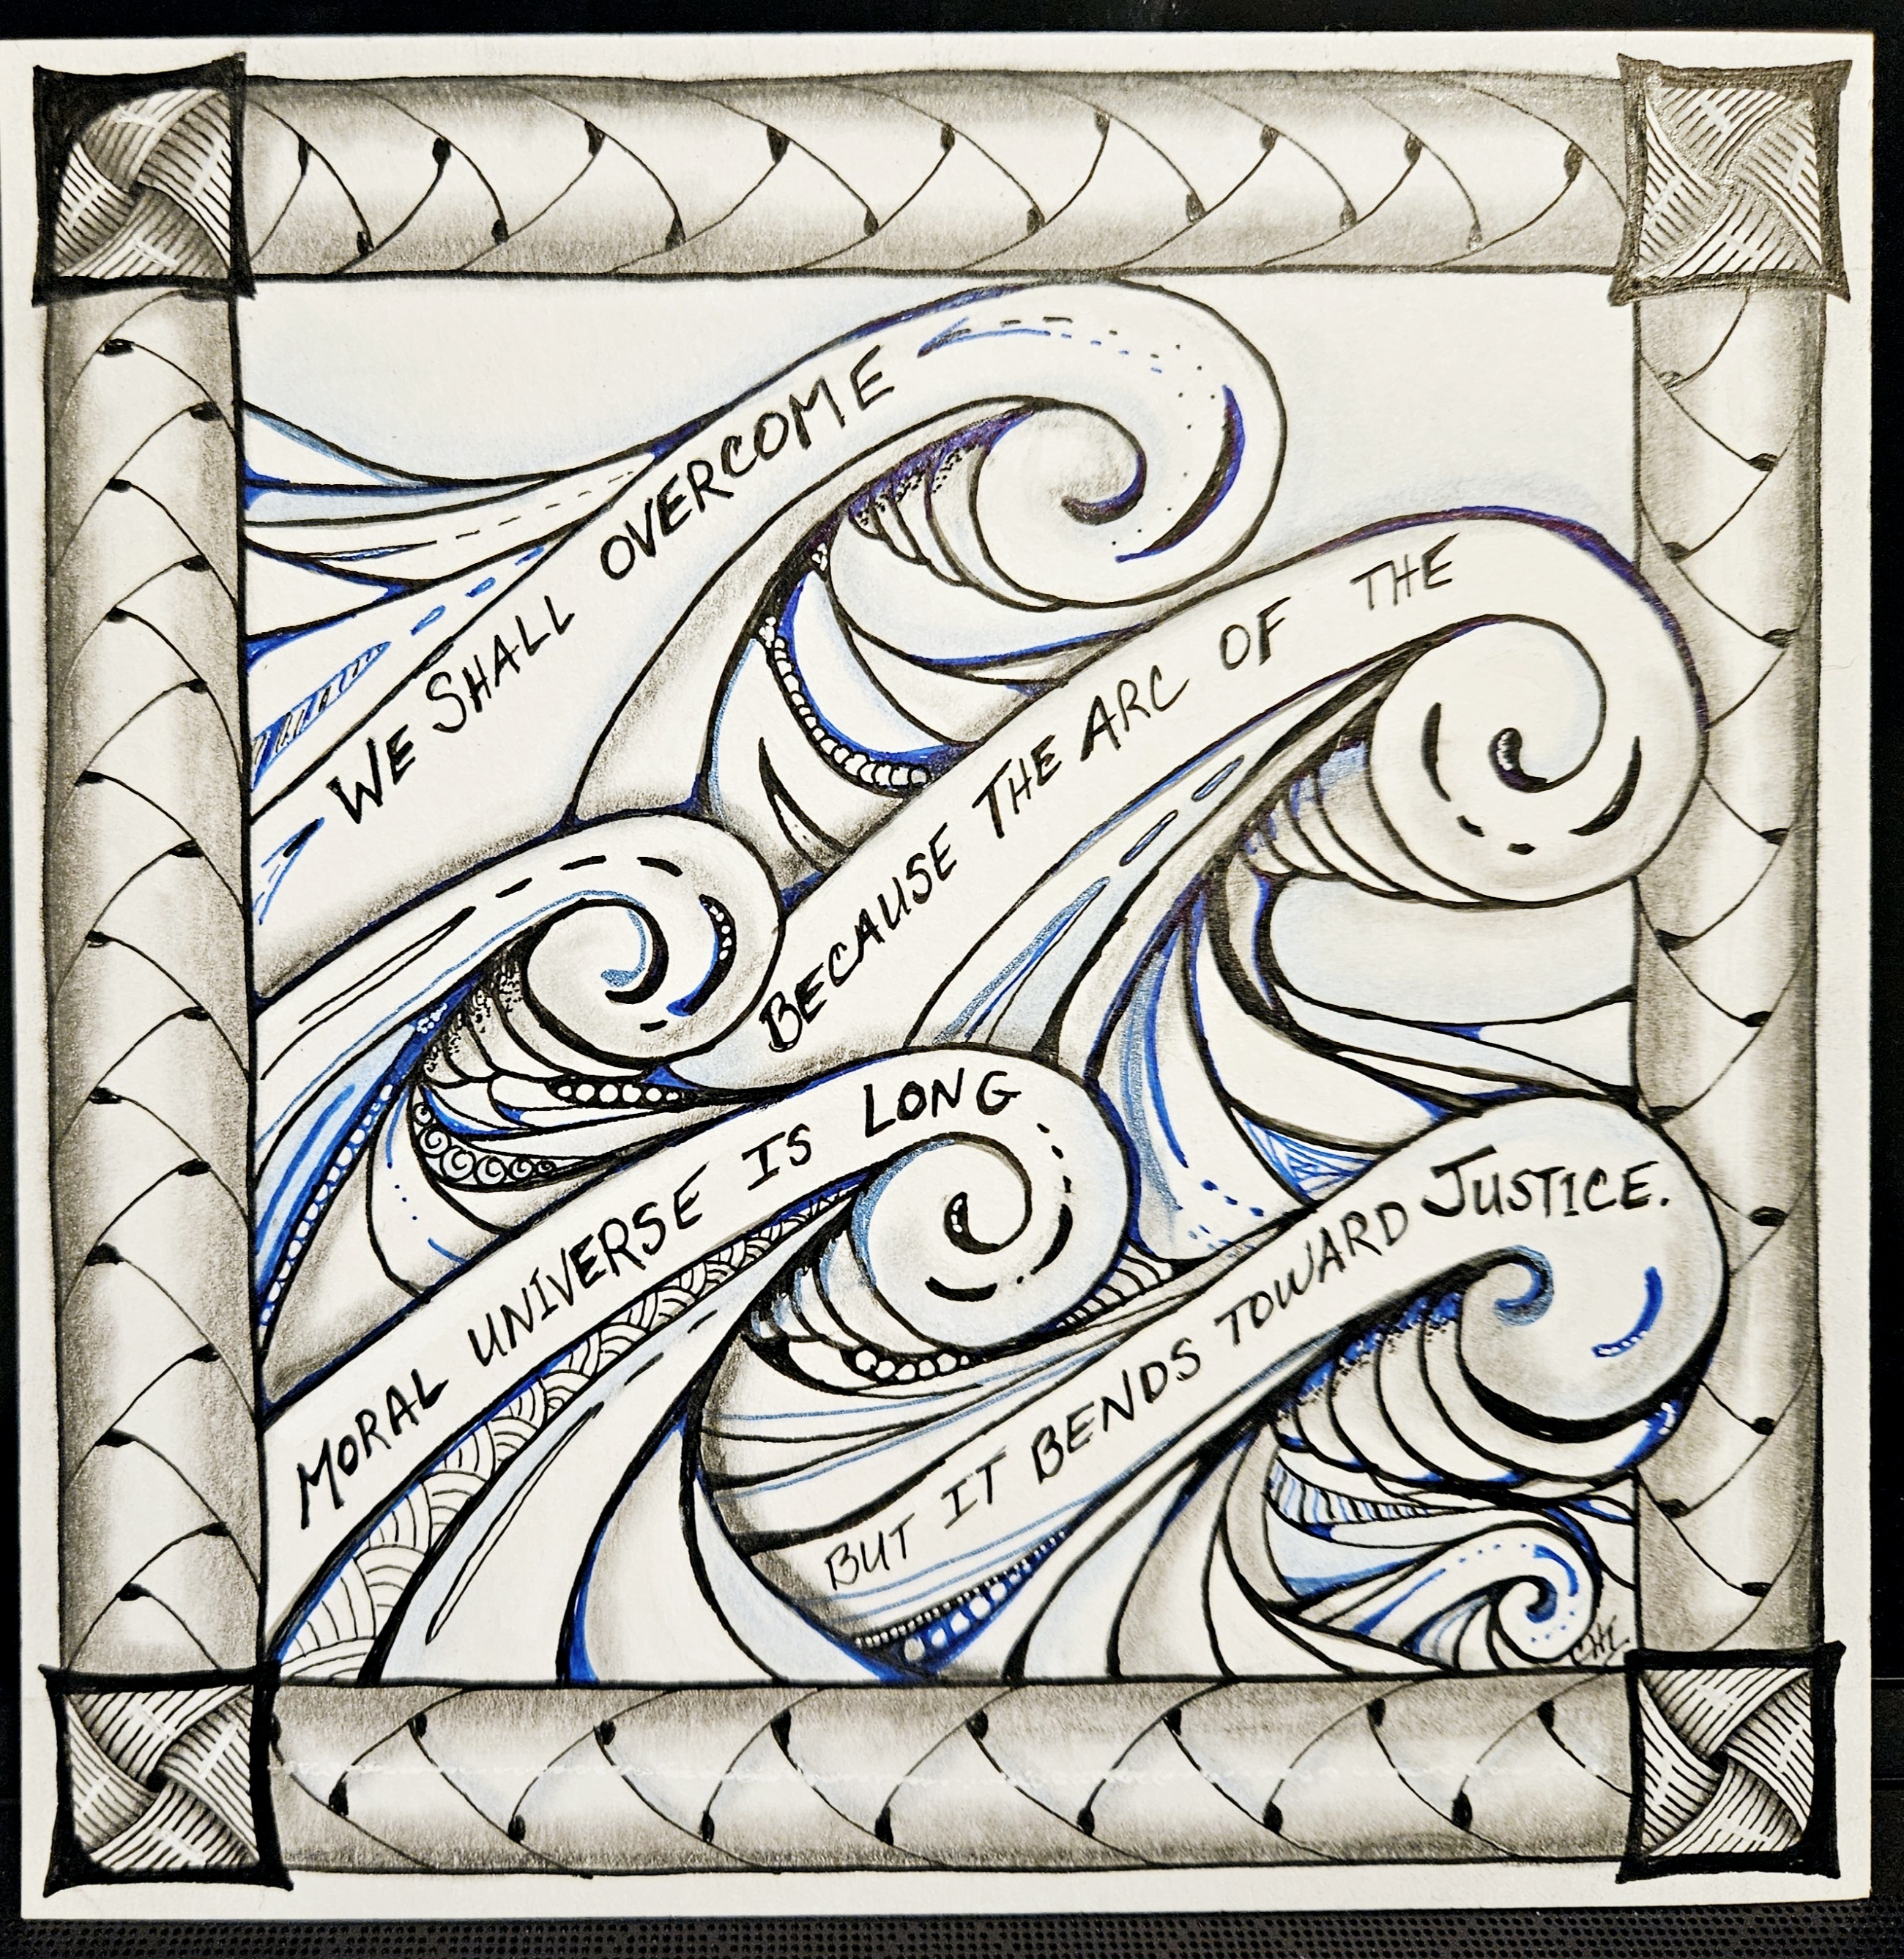 WE SHALL OVERCOME
BECAUSE THE ARC OF THE
MORAL UNIVERSE IS LONG
BUT IT BENDS TOWARD JUSTICE.